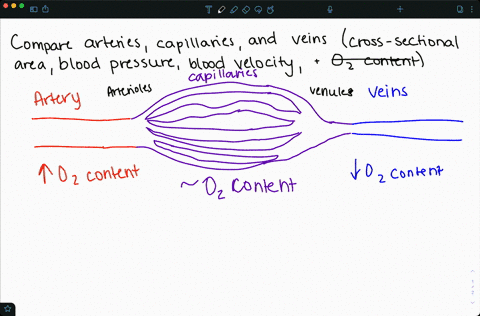 Compare arteries, capillaries, and veins (cross-sectional
area, blood pressure, blood velocity, + O₂ content)
capillaries
Artery Arterioles venules veins
↑ O₂ content ~ O₂ content ↓ O₂ content